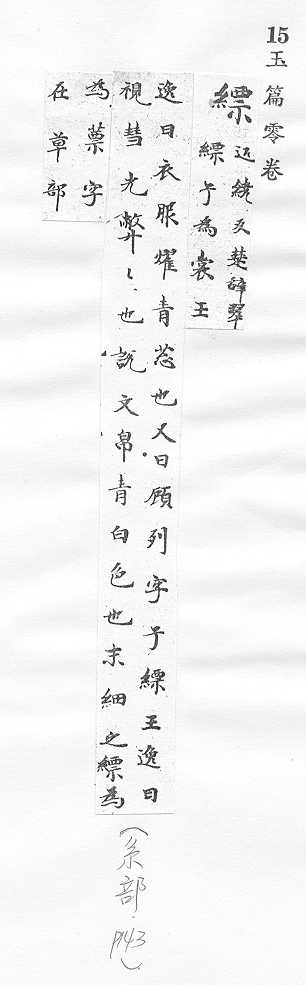 15玉篇零卷
縹近繞反楚辭翠
縹于為裳王
逸曰衣服燿青葱也又曰顧列字于縹王逸曰
視彗光弊〻也說文帛青白色也末細之縹為
為蔈字
在草部
(糸部.P143)